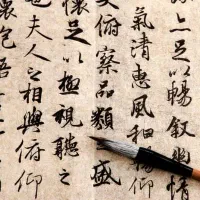 亦足以暢叙幽情
氣清惠風和暢仰
大俯察品類盛
懷足以極視聽之
也夫人之相與俯仰
懷抱悟